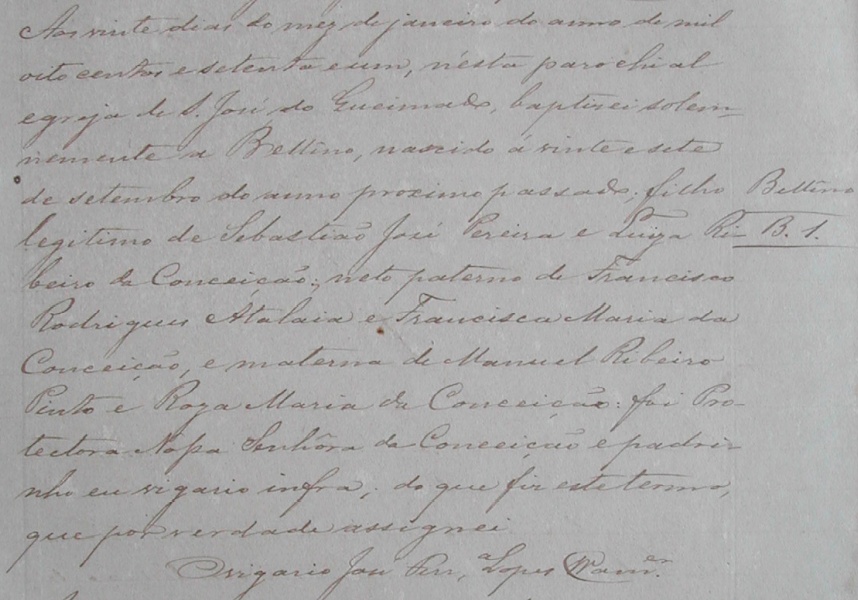 Aos vinte dias do mez de janeiro do anno de mil
oito centos e setenta e um, nésta parochial
egreja de S. José do Queimado, baptisei solem=
nemente a Bettino, nascido á vinte e sete
de setembro do anno proximo passado; filho
Bettino
legitimo de Sebastião José Pereira e Luiza Ri=
B. 1.
beiro da Conceição; neto paterno de Francisco
Rodrigues Atalaia e Francisca Maria da
Conceição, e materna de Manuel Ribeiro
Pinto e Roza Maria da Conceição: foi Pro-
tectora Nossa Senhôra da Conceição e padri=
nho eu vigario infra; do que fiz este termo,
que por verdade assignei
O vigario José Per.ª Lopes